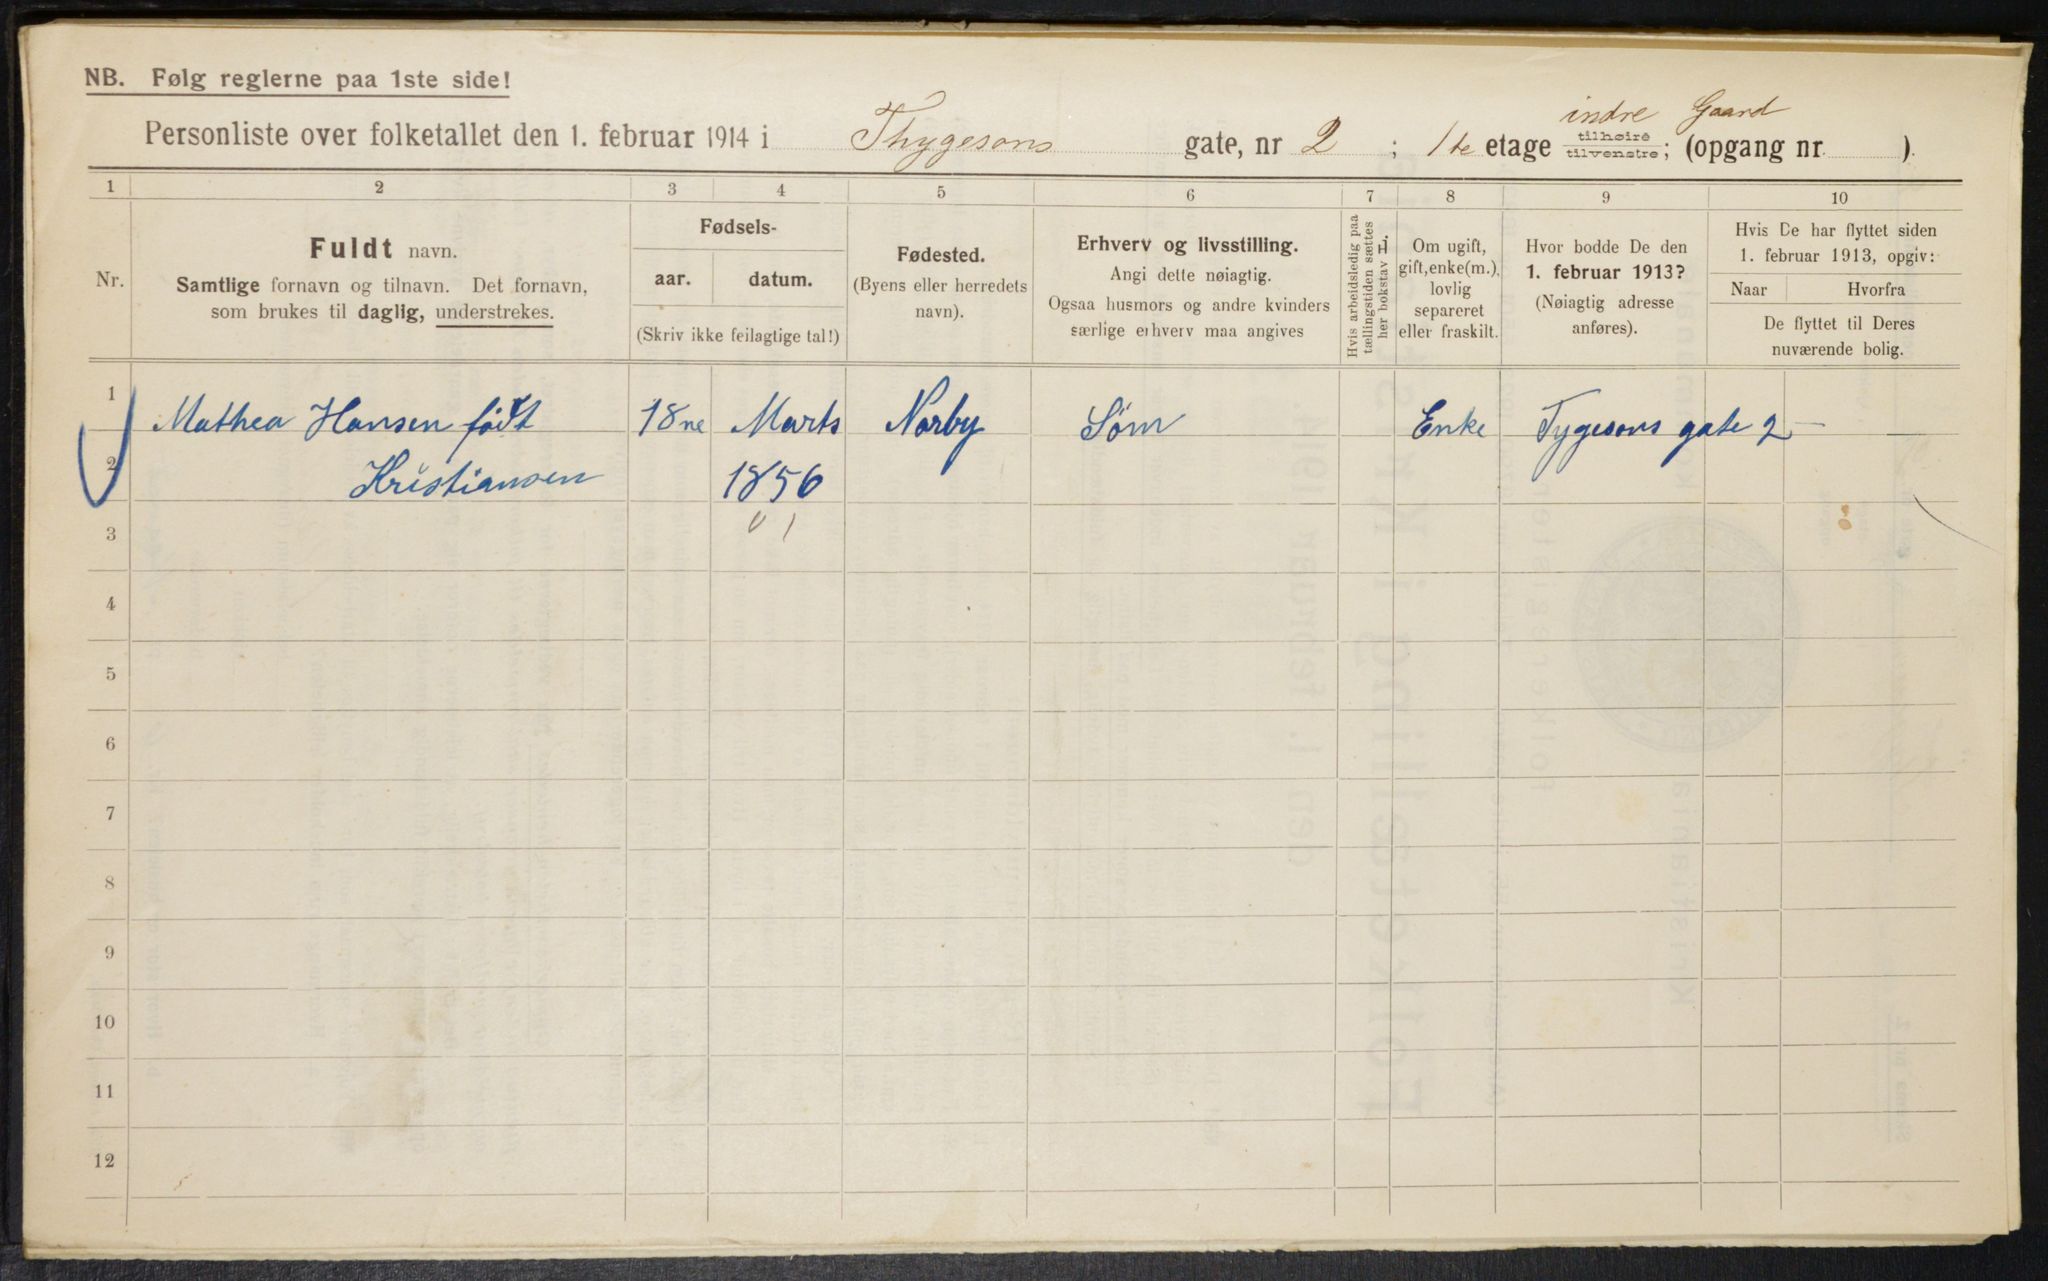 NB. Følg reglerne paa 1ste side!
Personliste over folketallet den 1. februar 1914 i Thygesons gate, nr 2 ; 1te etage tilhøire tilvenstre; indre Gaard (opgang nr. ).
1 2 3 4 5 6 7 8 9 10
Nr.
Fuldt navn.
Samtlige fornavn og tilnavn. Det fornavn,
som brukes til daglig, understrekes.
Fødsels-
aar. datum.
(Skriv ikke feilagtige tal!)
Fødested.
(Byens eller herredets
navn).
Erhverv og livsstilling.
Angi dette nøiagtig.
Ogsaa husmors og andre kvinders
særlige erhverv maa angives
Hvis arbeidsledig paa
tællingstiden sættes
her bokstav L.
Om ugift,
gift, enke(m.),
lovlig
separeret
eller fraskilt.
Hvor bodde De den
1. februar 1913?
(Nøiagtig adresse
anføres).
Hvis De har flyttet siden
1. februar 1913, opgiv:
Naar Hvorfra
De flyttet til Deres
nuværende bolig.
1 Mathea Hansen født 18ne Marts Norby Søm Enke Tygesons gate 2 –
2 Kristiansen 1856
3
4
5
6
7
8
9
10
11
12